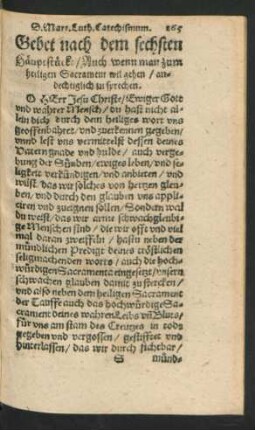 D. Mart. Luth. Catechismum. 265
Gebet nach dem sechsten
Häuptstück / Auch wenn man zum
heiligen Sacrament wil gehen / an-
dechtiglich zu sprechen.
O HErr Jesu Christe / Ewiger Gott
und wahrer Mensch / du hast nicht al-
lein dich durch dein heiliges wort uns
geoffenbahret, und zuerkennen gegeben /
unnd lest uns vermittelst dessen deines
Vatern gnade und hulde / auch verge-
bung der Sünden / ewiges leben / und se-
ligkeit verkündigen und anbieten / und
wilst. das wir solches von hertzen gleu-
ben / und durch den glauben uns appli-
ciren und zueignen sollen / Sondern weil
du weist / das wir arme schwachgleubi-
ge Menschen sind / die wir offt und viel
mal daran zweiffeln / hastu neben der
mündlichen Predigt deines tröstlichen
seligmachenden worts / auch die hoch-
würdigen Sacramenta eingesetzt / unsern
schwachen glauben damit zu stercken /
und also neben dem heiligen Sacrament
der Tauffe auch das hochwürdige Sa-
crament deines wahren Leibs uñ Bluts /
für uns am stam des Creutzes in tode
gegeben und vergossen / gestifftet und
hinterlassen / das wir durch sichtbar /
S münd-